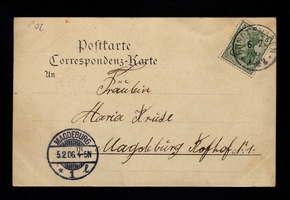 Postkarte
Correspondenz-Karte
An
Fräulein
Maria Kruse
Magdeburg
MAGDEBURG
5.2.06. 4-5N
* 1 l